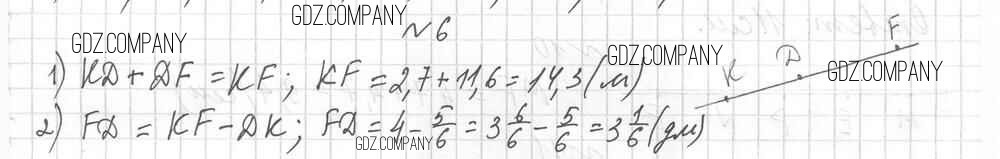 №6
GDZ.COMPANY
GDZ.COMPANY
GDZ.COMPANY
1) KD + DF = KF; KF = 2,7 + 11,6 = 14,3 (м)
K D F
GDZ.COMPANY
2) FD = KF - DK; FD = 4 - 5/6 = 3 6/6 - 5/6 = 3 1/6 (дм)
GDZ.COMPANY